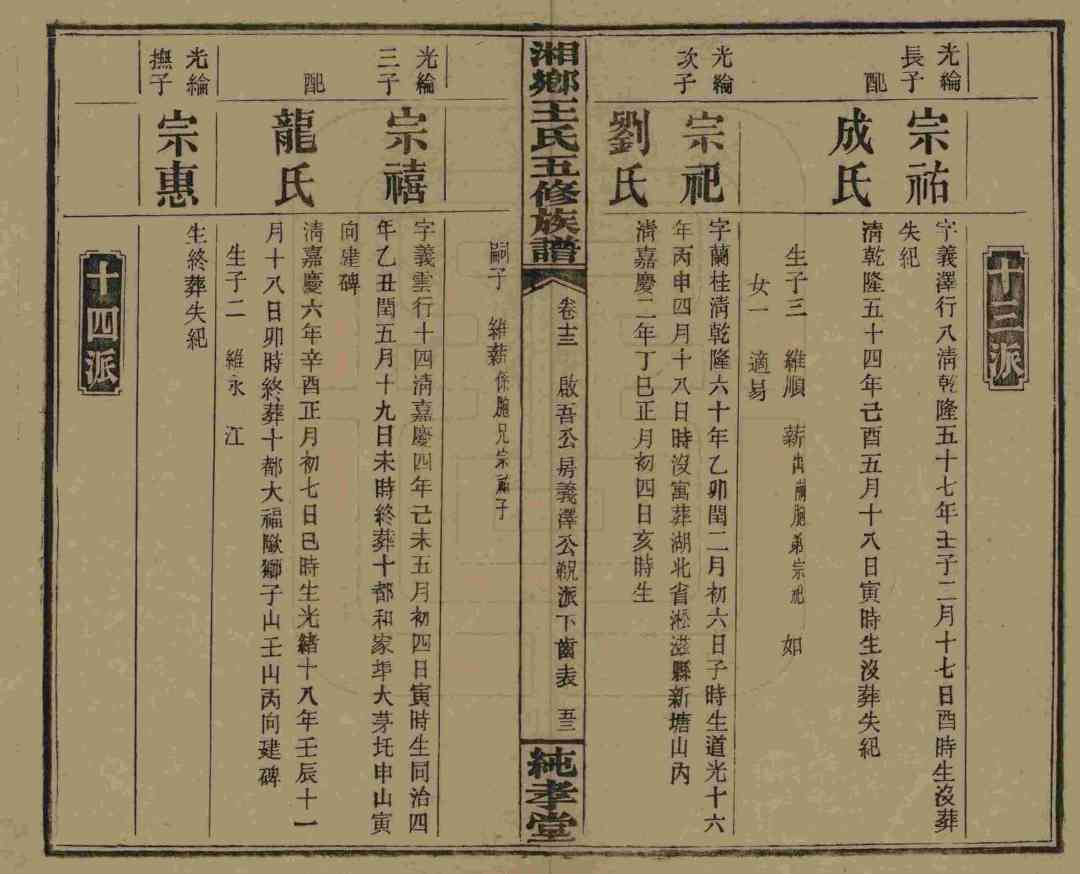 十三派
光綸長子
宗祐
字義澤行八清乾隆五十七年壬子二月十七日酉時生沒葬
失紀
配
成氏
清乾隆五十四年己酉五月十八日寅時生沒葬失紀
生子三 維順 薪出嗣胞弟宗祀 如
女一 適易
光綸次子
宗祀
字蘭桂清乾隆六十年乙卯閏二月初六日子時生道光十六
年丙申四月十八日時沒寓葬湖北省淞滋縣新塘山內
劉氏
清嘉慶二年丁巳正月初四日亥時生
嗣子 維薪係胞兄宗祐子
湘鄉王氏五修族譜
卷十三 啟吾公房義澤公親派下齒表 五三
純孝堂
光綸三子
宗禧
字義雲行十四清嘉慶四年己未五月初四日寅時生同治四
年乙丑閏五月十九日未時終葬十都和家坤大茅圫申山寅
向建碑
配
龍氏
清嘉慶六年辛酉正月初七日巳時生光緒十八年壬辰十一
月十八日卯時終葬十都大福歐獅子山壬山丙向建碑
生子二 維永 江
光綸撫子
宗惠
生終葬失紀
十四派